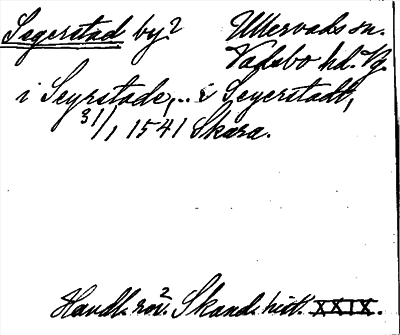 Segerstad by? Ullervads sn.
Vadsbo hd. Vg.
i Seyrstade, .. i Segerstadt,
31/1 1541 Skara.
Handl. rör. Skand. hist. XXIX.